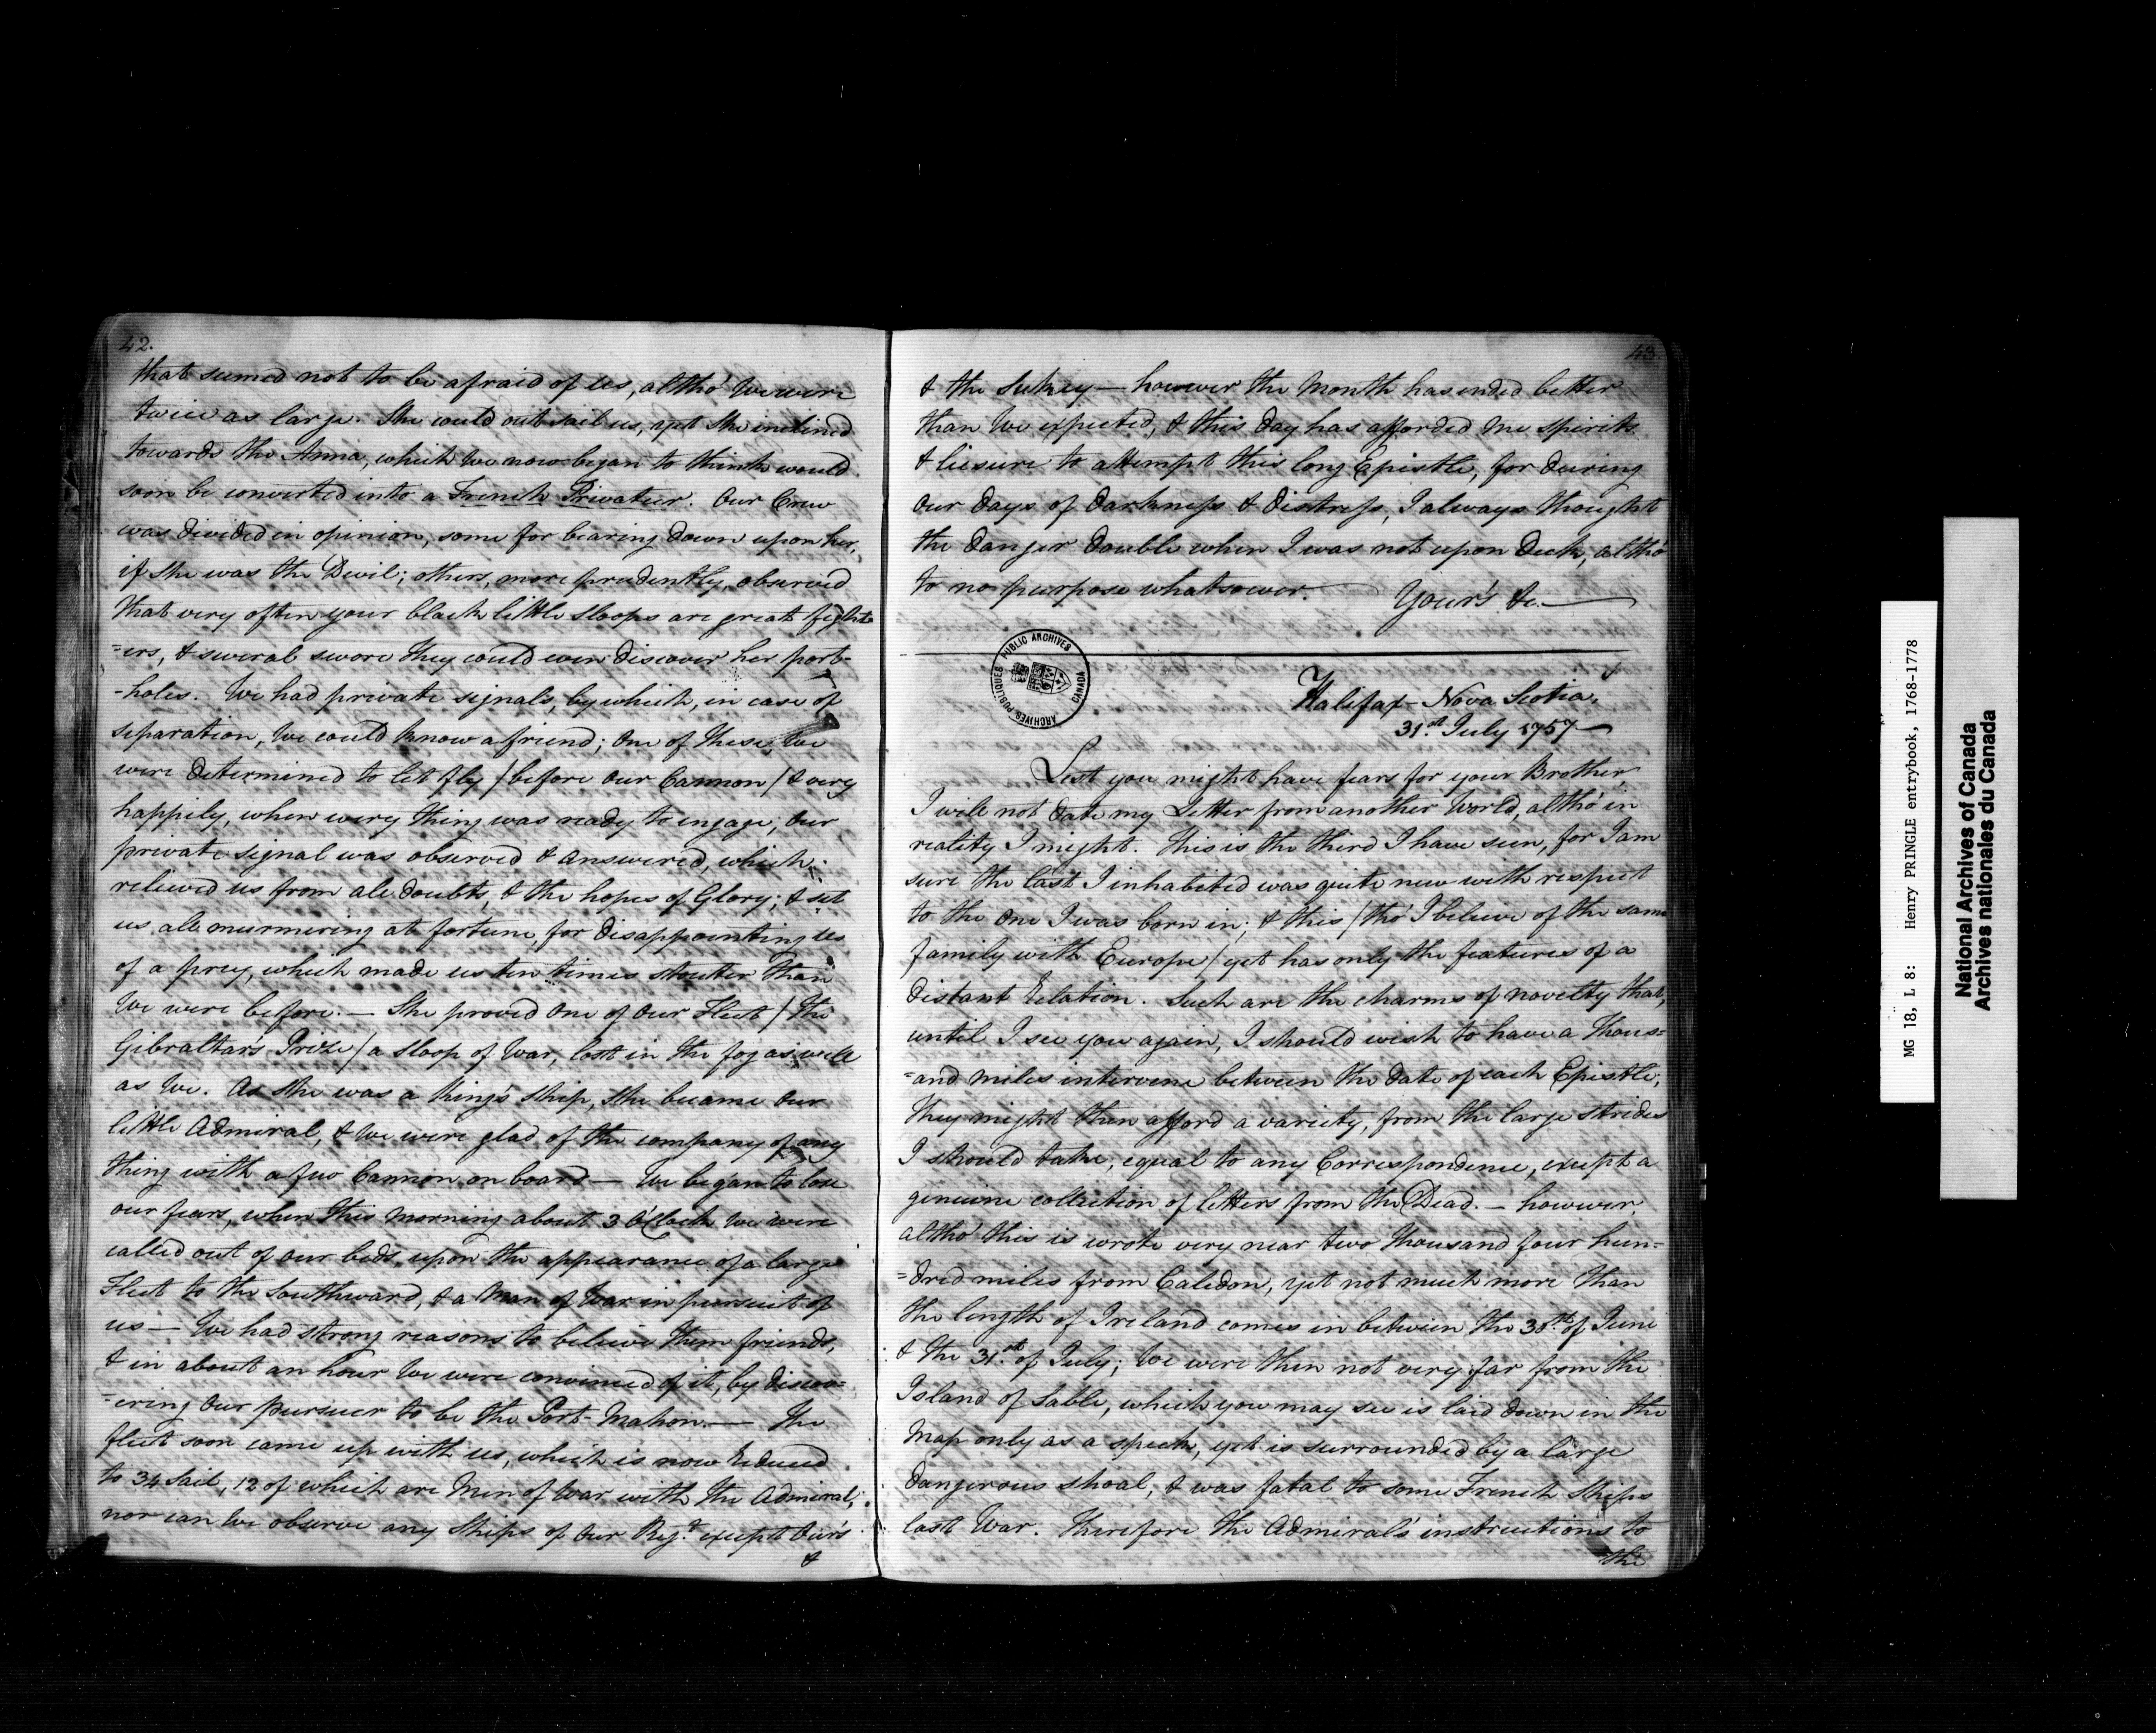 42.
that seemed not to be afraid of us, altho' We were
twice as large. She could out sail us, yet she inclined
towards the Anna, which we now began to think would
soon be converted into a French Privateer. Our Crew
was divided in opinion, some for bearing down upon her,
if she was the Devil; others, more prudently, observed
that very often your black little sloops are great fight-
=ers, & several swore they could even discover her port-
-holes. We had private signals, by which, in case of
separation, We could know a friend; One of these We
were determined to let fly / before our Cannon / & very
happily, when every thing was ready to engage, Our
private signal was observed & answered, which
relieved us from all doubts, & the hopes of Glory; & set
us all murmering at fortune for disappointing us
of a prey, which made us ten times stouter than
We were before. — She proved One of Our Fleet / the
Gibraltar's Prize / a sloop of War, lost in the fog as well
as We. As she was a King's Ship, she became Our
little Admiral, & We were glad of the company of any
thing with a few Cannon on board — We began to lose
our fears, when this morning about 3 O'Clock we were
called out of our beds, upon the appearance of a large
Fleet to the Southward, & a Man of War in pursuit of
us — We had strong reasons to believe them friends,
& in about an hour We were convinced of it, by discov=
=ering Our pursuer to be the Port-Mahon. — The
fleet soon came up with us, which is now reduced
to 34 sail, 12 of which are Men of War with the Admiral;
nor can We observe any Ships of Our Regt. except Our's
&
43.
& the Sukey — however the Month has ended better
than We expected, & this day has afforded me spirits
& liesure to attempt this long Epistle, for during
our days of darkness & distress, I always thought
the danger double when I was not upon Deck, altho'
to no purpose whatsoever. Your's &c. —
PUBLIC ARCHIVES
CANADA
ARCHIVES PUBLIQUES
Halifax - Nova Scotia,
31st. July 1757 —
Lest you might have fears for your Brother,
I will not date my Letter from another World, altho' in
reality I might. This is the third I have seen, for I am
sure the last I inhabited was quite new with respect
to the One I was born in; & this / tho' I believe of the same
family with Europe / yet has only the features of a
distant relation. Such are the charms of novelty that,
until I see you again, I should wish to have a thous=
=and miles intervene between the date of each Epistle;
they might then afford a variety, from the large strides
I should take, equal to any Correspondence, except a
genuine collection of letters from the Dead. — however,
altho' this is wrote very near two thousand four hun=
=dred miles from Caledon, yet not much more than
the length of Ireland comes in between the 30th. of June
& the 31st. of July; We were then not very far from the
Island of Sable, which you may see is laid down in the
Map only as a speck, yet is surrounded by a large
dangerous shoal, & was fatal to some French Ships
last War. Therefore the Admiral's instructions to
the
MG 18, L 8: Henry PRINGLE entrybook, 1768-1778
National Archives of Canada
Archives nationales du Canada